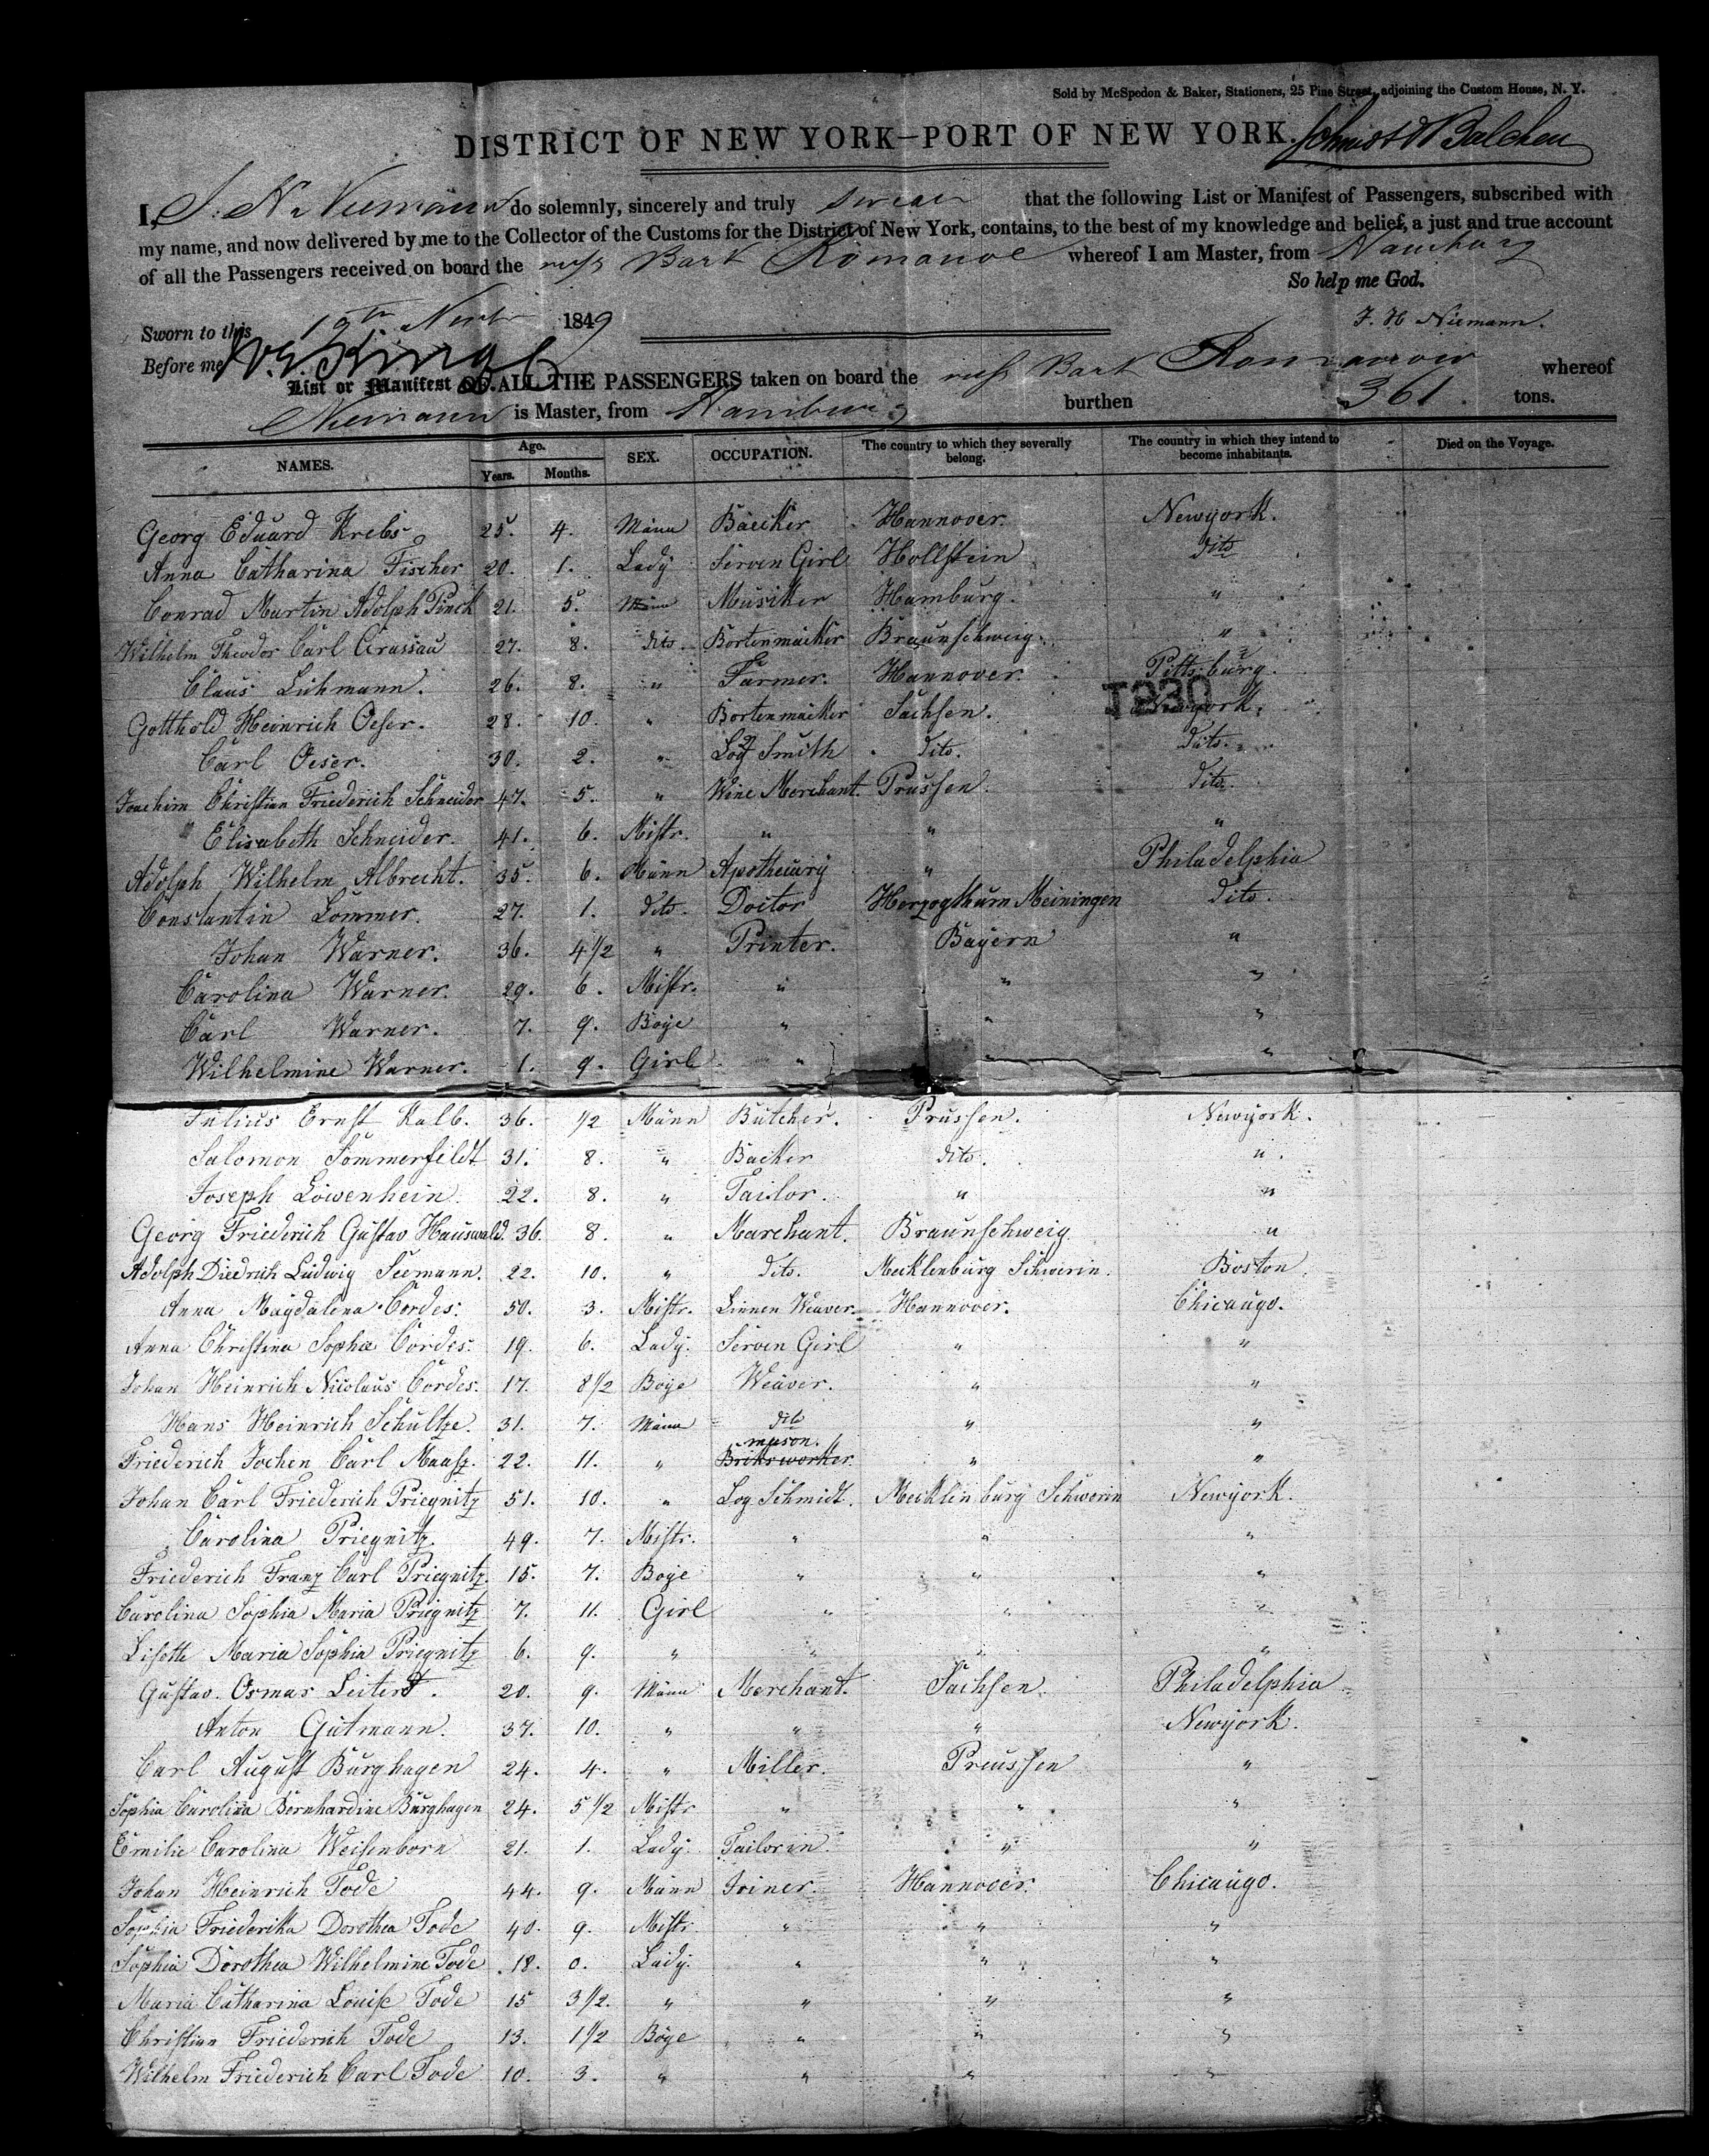 Sold by McSpedon & Baker, Stationers, 25 Pine Street, adjoining the Custom House, N. Y.
DISTRICT OF NEW YORK—PORT OF NEW YORK.
Schmidt & Balchen
I, J. H. Niemann do solemnly, sincerely and truly swear that the following List or Manifest of Passengers, subscribed with
my name, and now delivered by me to the Collector of the Customs for the District of New York, contains, to the best of my knowledge and belief, a just and true account
of all the Passengers received on board the russ Bark whereof I am Master, from Hamburg
So help me God.
Sworn to this 19th Novbr 1849
J. H Niemann.
Before me
List or Manifest OF ALL THE PASSENGERS taken on board the russ Bark whereof
Niemann is Master, from Hamburg burthen 361. tons.
NAMES. Age. Years. Months. SEX. OCCUPATION. The country to which they severally belong. The country in which they intend to become inhabitants. Died on the Voyage.
Georg Eduard Krebs 25. 4. Männ Baecker Hannover. Newyork.
Anna Catharina Fischer 20. 1. Lady Serven Girl Hollstein dito
Conrad Martin Adolph Pinck 21. 5. Männ Musiker Hamburg. "
Wilhelm Theodor Carl Grassau 27. 8. dito Bortenmacker Braunschweig. "
Claus Lühmann. 26. 8. " Farmer. Hannover. Pittsburg.
T230
Gotthold Heinrich Oeser. 28. 10. " Bortenmacker Sachsen. Newyork.
Carl Oeser. 30. 2. " Log Smith dito. dito.
Joachim Christian Friederich Schneider 47. 5. " Wine Merchant. Prussen. dito.
" Elisabeth Schneider. 41. 6. Mistr. " " "
Adolph Wilhelm Albrecht. 35. 6. Männ Apothecary " Philadelphia
Constantin Lommer. 27. 1. dito. Doctor Herzogthum Meiningen dito.
Johan Warner. 36. 4 1/2 " Printer. Bayern "
Carolina Warner. 29. 6. Mistr. " " "
Carl Warner. 7. 9. Boye " " "
Wilhelmine Warner. 1. 9. Girl " " "
Julius Ernst Kalb. 36. 1/2 Männ Butcher. Prussen. Newyork.
Salomon Sommerfeldt 31. 8. " Backer dito. "
Joseph Löwenhein 22. 8. " Tailor. " "
Georg Friederich Gustav Hauswald. 36. 8. " Marchant. Braunschweig "
Adolph Diedrich Ludwig Seemann. 22. 10. " dito. Mecklenburg Schwerin. Boston
Anna Magdalena Cordes. 50. 3. Mistr. Linnen Weaver. Hannover. Chicaugo.
Anna Christina Sophia Cordes. 19. 6. Lady. Serven Girl " "
Johan Heinrich Nicolaus Cordes. 17. 8 1/2 Boye Weaver. " "
Hans Heinrich Schultze. 31. 7. Männ dito " "
mason.
Friederich Jochen Carl Maass. 22. 11. " Briksworker " "
Johan Carl Friederich Priegnitz 51. 10. " Log Schmidt. Mecklinburg Schwerin Newyork.
Carolina Priegnitz. 49. 7. Mistr. " " "
Friederich Franz Carl Priegnitz. 15. 7. Boye " " "
Carolina Sophia Maria Priegnitz 7. 11. Girl " " "
Lisette Maria Sophia Priegnitz 6. 9. " " " "
Gustav Osmar Leitert. 20. 9. Männ Merchant. Sachsen. Philadelphia
Anton Gutmann. 37. 10. " " " Newyork.
Carl August Burghagen 24. 4. " Miller. Preussen "
Sophia Carolina Bernhardine Burghagen 24. 5 1/2 Mistr " " "
Emilie Carolina Weisenborn 21. 1. Lady. Tailorin. " "
Johan Heinrich Tode 44. 9. Männ Joiner. Hannover. Chicaugo.
Sophia Friederika Dorothea Tode 40. 9. Mistr " " "
Sophia Dorothea Wilhelmine Tode 18. 0. Lady. " " "
Maria Catharina Louise Tode 15 3 1/2. " " " "
Christian Friederich Tode 13. 1 1/2 Boye " " "
Wilhelm Friederich Carl Tode 10. 3. " " " "